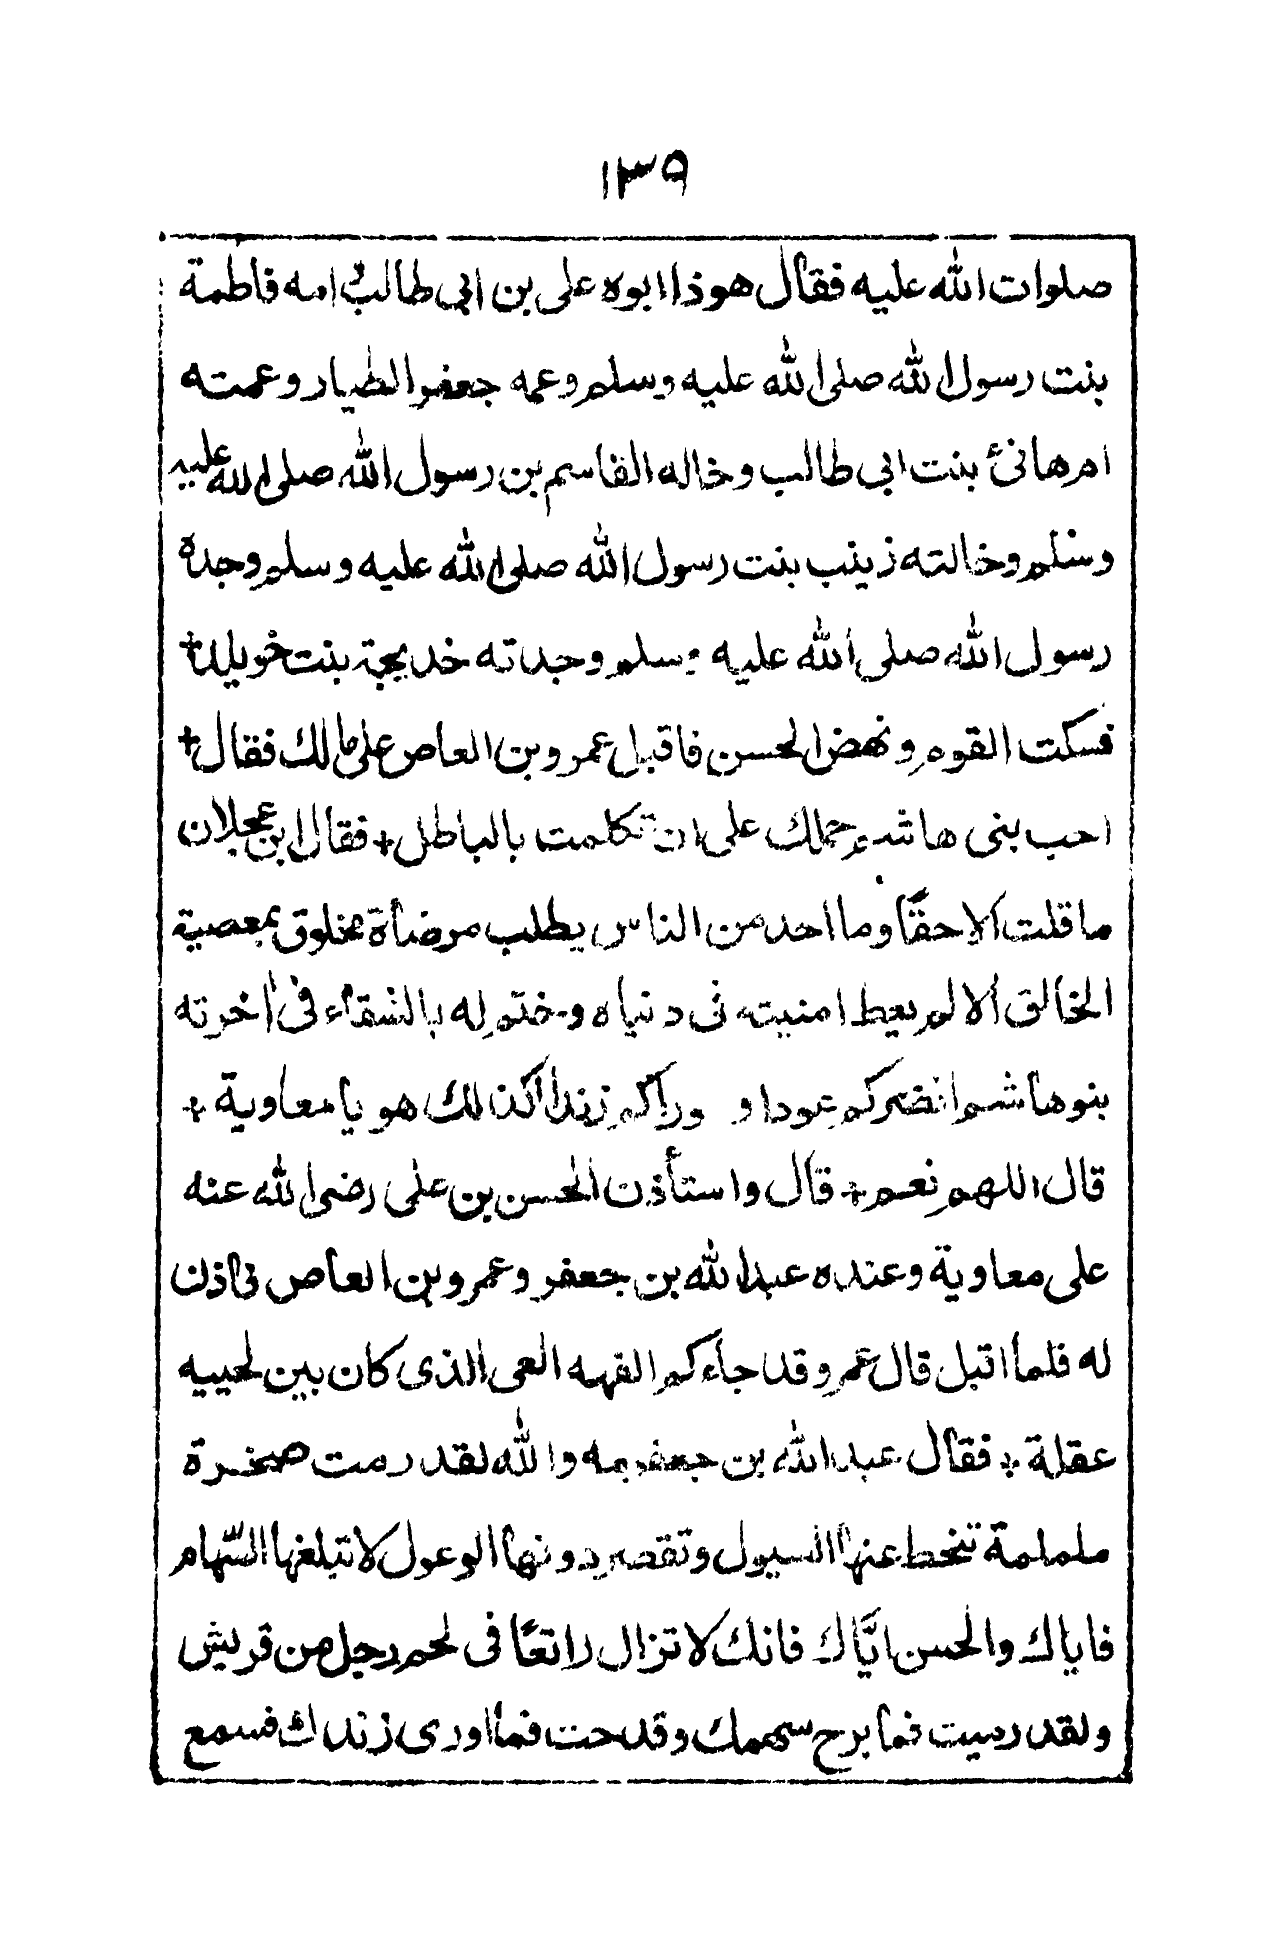 ١٣٩
صلوات الله عليه فقال هوذا ابوه على بن ابى طالب وامه فاطمة
بنت رسول الله صلى الله عليه وسلم وعمه جعفر الطيار وعمته
ام هانئ بنت ابى طالب وخاله القاسم بن رسول الله صلى الله عليه
وسلم وخالته زينب بنت رسول الله صلى الله عليه وسلم وجده
رسول الله صلى الله عليه وسلم وجدته خديجة بنت خويلد+
فسكت القوم ونهض الحسن فاقبل عمرو بن العاص على مالك فقال+
احب بنى هاشم حملك على ان تكلمت بالباطل + فقال ابن عجلان
ما قلت الا حقًا وما احد من الناس يطلب مرضاة مخلوق بمعصية
الخالق الا لم يعط امنيته فى دنياه وختم له بالشقاء فى اخرته
بنو هاشم انضركم عودا و وراكم زندا اكذلك هو يا معاوية +
قال اللهم نعم + قال واستأذن الحسن بن على رضى الله عنه
على معاوية وعنده عبد الله بن جعفر وعمرو بن العاص فاذن
له فلما اقبل قال عمرو قد جاءكم الفهه العى الذى كان بين لحييه
عقلة + فقال عبد الله بن جعفر مه والله لقد رمت صخرة
ململمة تنحط عنها السيول وتقصر دونها الوعول لا تبلغها السّهام
فاياك والحسن ايّاك فانك لا تزال راتعًا فى لحم رجل من قريش
ولقد رميت فما برح سهمك وقدحت فما اورى زندك فسمع